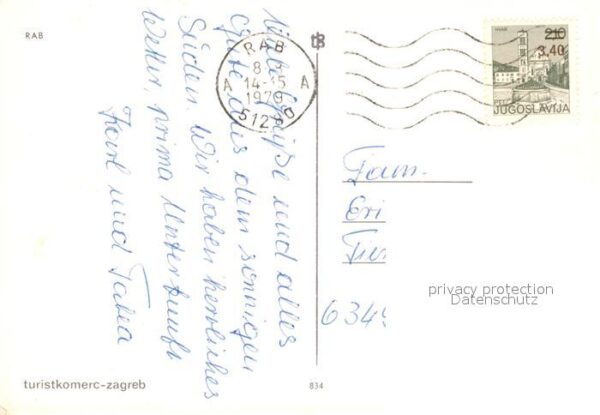 RAB
Liebe Grüße und alles
Gute aus dem sonnigen
Süden. Wir haben herrliches
Wetter, prima Unterkunft
Karl und
RAB
8
14-15
1976
A A
512
HVAR
2.10
3,40
JUGOSLAVIJA
Fam.
Eri
privacy protection
Datenschutz
634
turistkomerc-zagreb
834